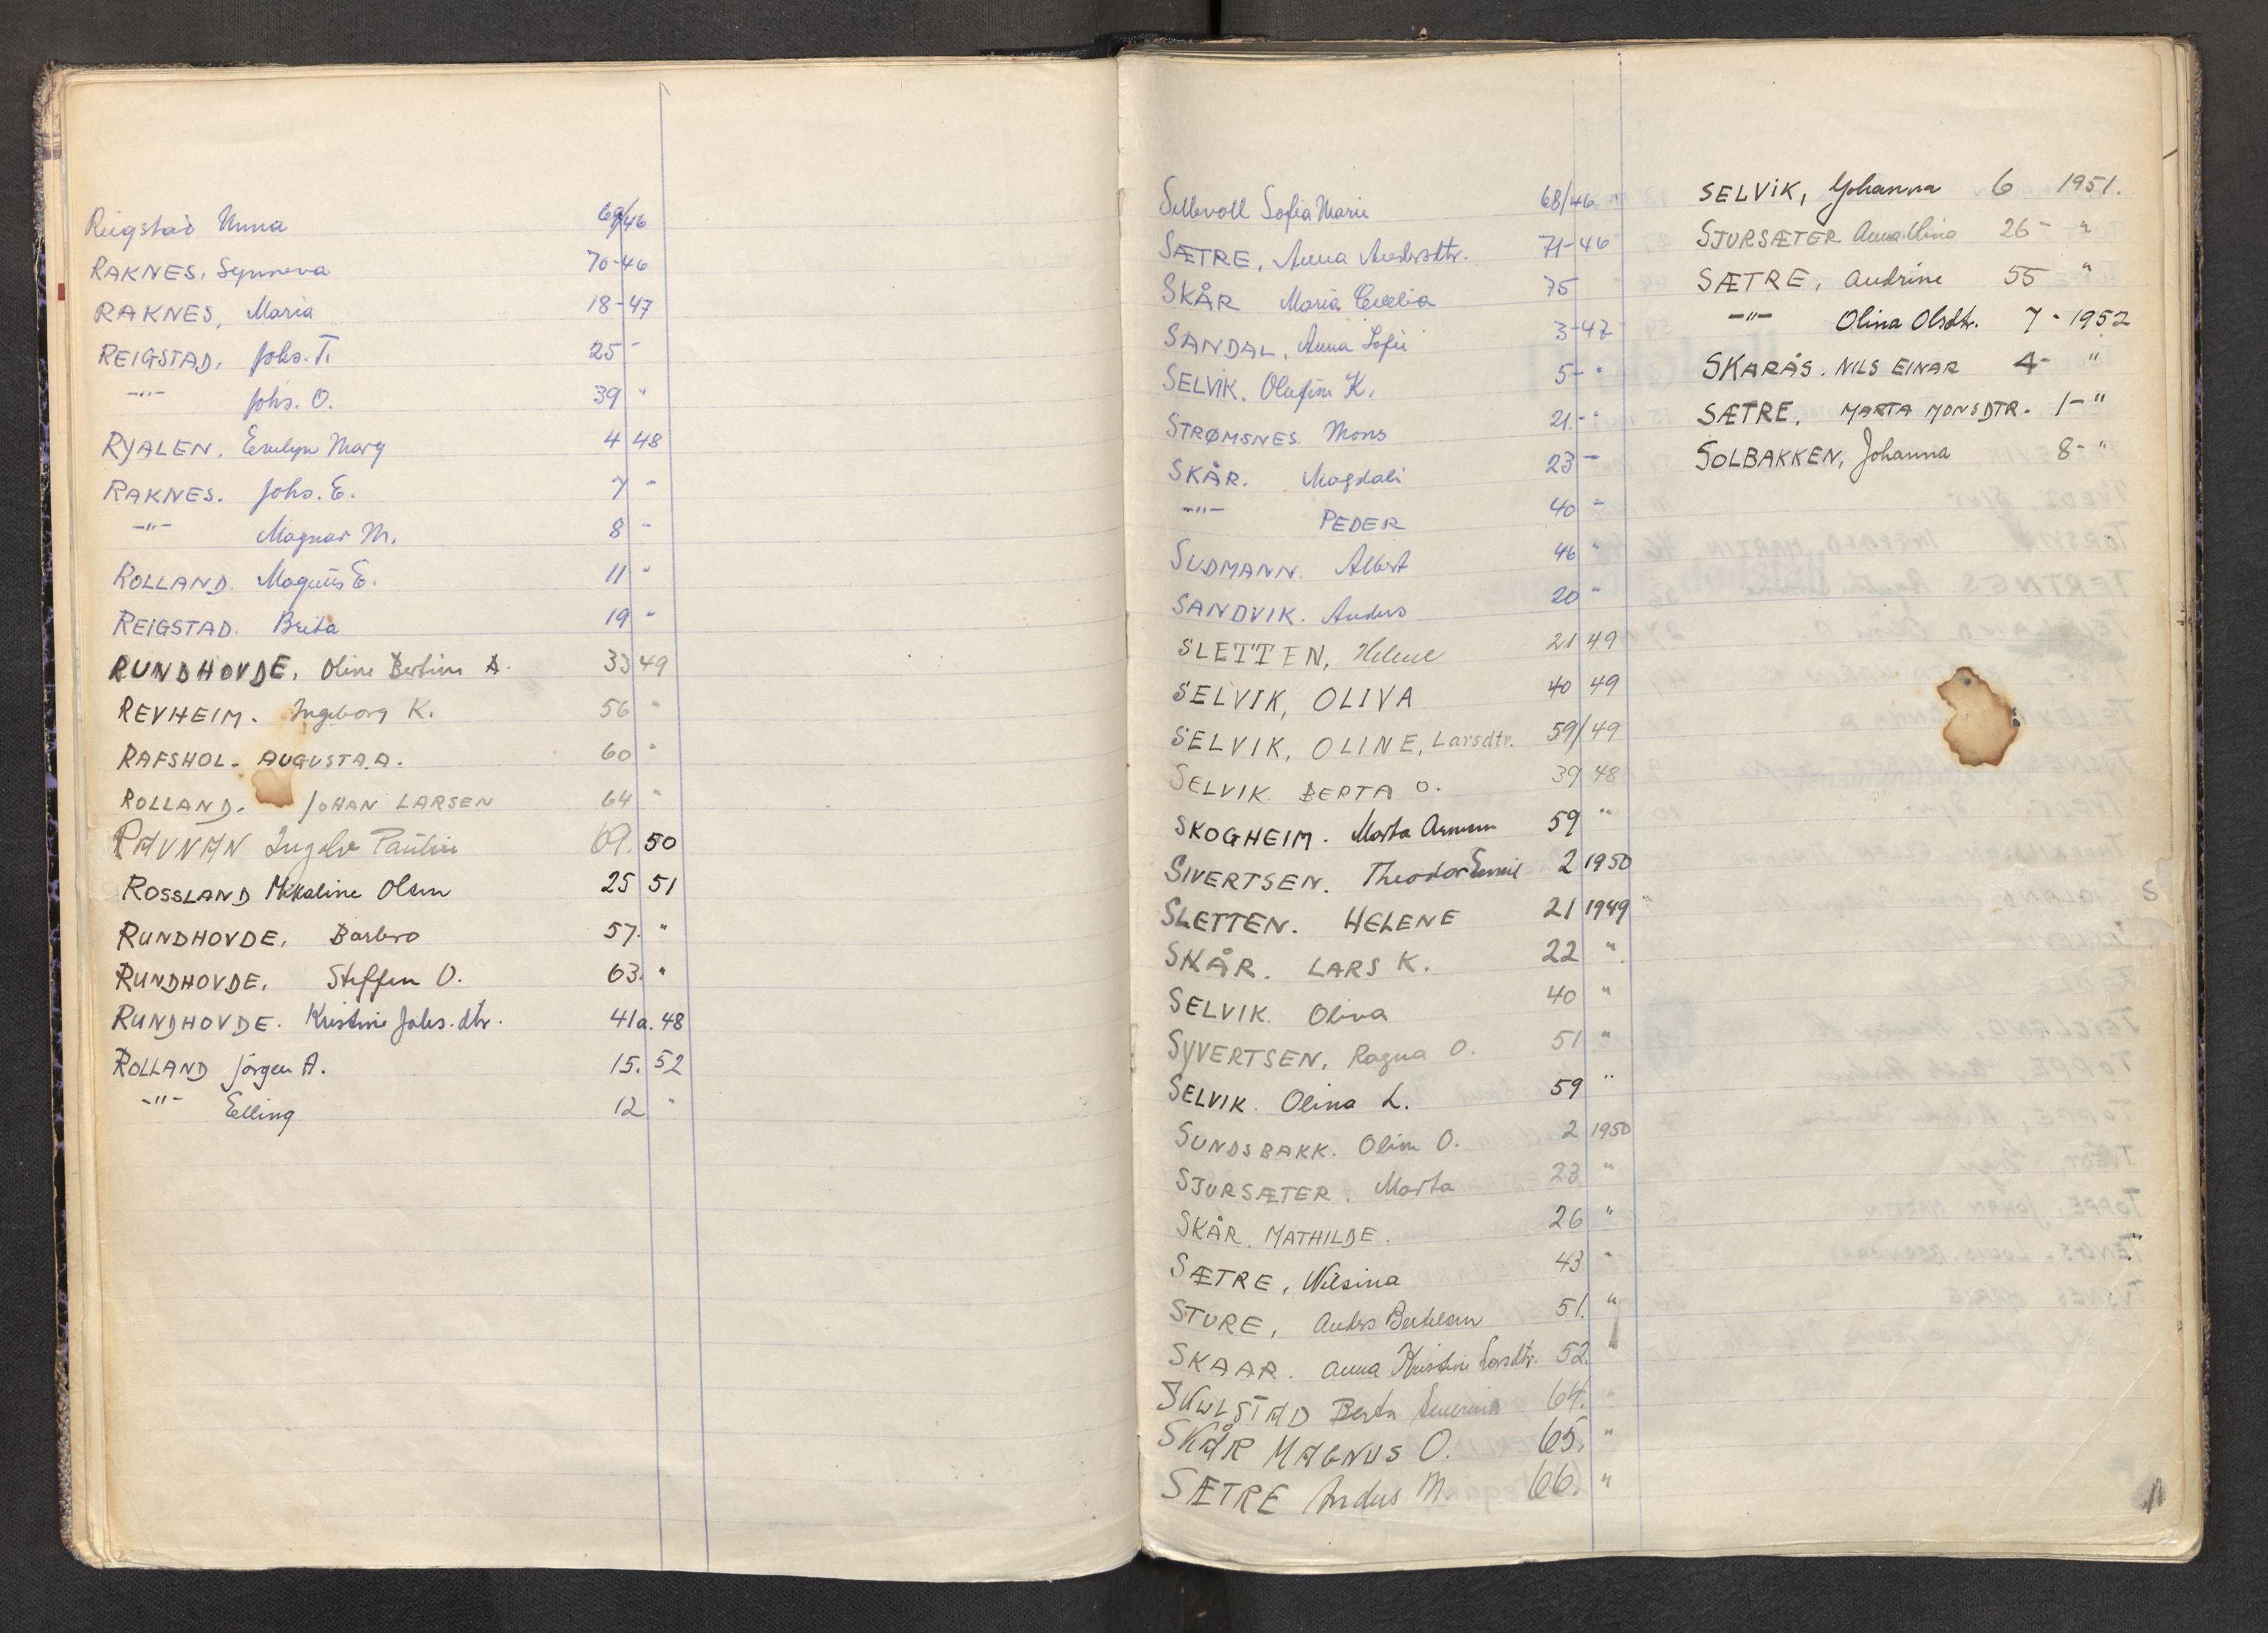 Reigstad Unna 69/46
RAKNES, Synneva 70-46
RAKNES, Maria 18-47
REIGSTAD, Johs. T. 25 -
-"- Johs. O. 39 "
RYALEN. Evelyn Marg 4 48
RAKNES. Johs. E. 7 "
-"- Magnar M. 8 "
ROLLAND. Magnus E. 11 "
REIGSTAD. Brita 19 "
RUNDHOVDE, Oline Bertine A. 33 49
REVHEIM. Ingeborg K. 56 "
RAFSHOL. AUGUSTA.A. 60 "
ROLLAND. JOHAN LARSEN 64 "
RAVNAN Ingolv Paulin 69. 50
ROSSLAND Mikaline Olsen 25 51
RUNDHOVDE, Barbro 57. "
RUNDHOVDE, Steffen O. 63. "
RUNDHOVDE. Kristine Johs.dtr. 41a. 48
ROLLAND Jörgen A. 15. 52
-"- Elling 12 "
Sellevoll Sofia Marie 68/46
SÆTRE, Anna Andersdtr. 71-46
SKÅR Maria Cecelia 75
SANDAL, Anna Sofie 3-47
SELVIK. Olufine K. 5- "
STRØMSNES. Mons 21.- "
SKÅR. Magdali 23 -
-"- PEDER 40 "
SUDMANN. Albert 46 "
SANDVIK. Anders 20 "
SLETTEN, Helene 21 49
SELVIK, OLIVA 40 49
SELVIK, OLINE, Larsdtr. 59/49
SELVIK. BERTA O. 39 48
SKOGHEIM. Marta 59 "
SIVERTSEN. Theodor Emil 2 1950
SLETTEN. HELENE 21 1949
SKÅR. LARS K. 22 "
SELVIK. Oliva 40 "
SYVERTSEN, Ragna O. 51 "
SELVIK. Olina L. 59 "
SUNDSBAKK. Oline O. 2 1950
SJURSÆTER. Marta 23 "
SKÅR. MATHILDE. 26 "
SÆTRE, Nilsina 43 "
STURE, Anders Bertelsen 51. "
SKAAR. Anna Kristine Larsdtr. 52. "
Berta Severina 64. "
SKÅR MAGNUS O. 65. "
SÆTRE Anders M. 66. "
SELVIK, Johanna 6 1951.
SJURSÆTER Anna Olina 26 - "
SÆTRE, Andrine 55 "
-"- Olina Olsdtr. 7 - 1952
SKARÅS. NILS EINAR 4- "
SÆTRE, MARTA MONSDTR. 1- "
SOLBAKKEN, Johanna 8- "
S